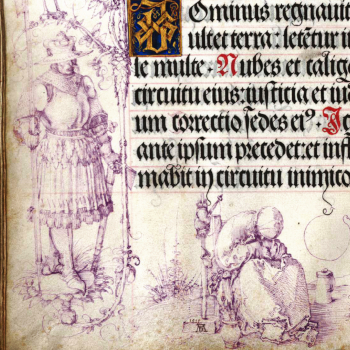 DOminus regnavit
ultet terra: letētur i
le multe. Nubes et calig
circuitu eius: iusticia et iu
um correctio sedes eiꝰ. Ig
ante ipsum precedet: et infl
mabit in circuitu inimico
AD